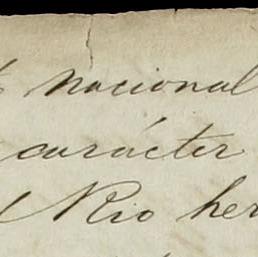 nacional
carácter
Rio her